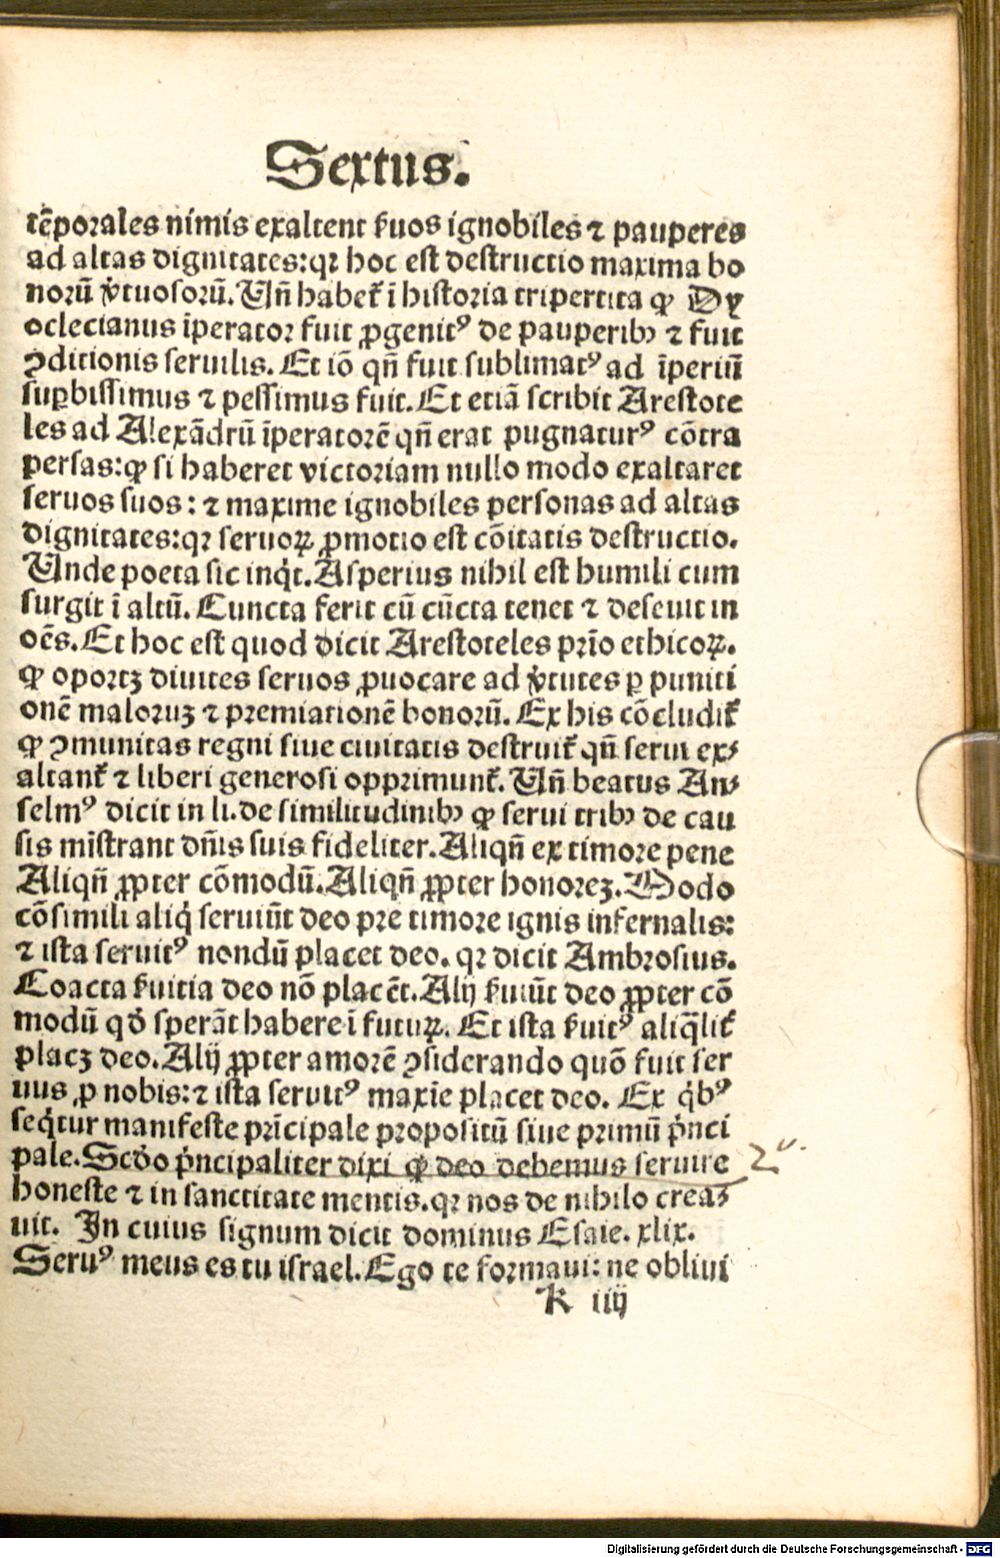 Sextus.
tēporales nimis exaltent ẜuos ignobiles ⁊ pauperes
ad altas dignitates: qꝛ hoc est destructio maxima bo
norū v̓tuosorū. Uñ habet᷑ ī historia tripertita ꝙ Dy
oclecianus īperator fuit ꝓgenitꝰ de pauperibꝫ ⁊ fuit
ꝯditionis seruilis. Et iō qñ fuit sublimatꝰ ad īperiū
suꝑbissimus ⁊ pessimus fuit. Et etiā scribit Arestote
les ad Alexādrū īperatorē qñ erat pugnaturꝰ cōtra
persas: ꝙ si haberet victoriam nullo modo exaltaret
seruos suos: ⁊ maxime ignobiles personas ad altas
dignitates: qꝛ seruoꝝ ꝓmotio est cōitatis destructio.
Unde poeta sic inq̇t. Asperius nihil est humili cum
surgit ī altū. Cuncta ferit cū cūcta tenet ⁊ deseuit in
oēs. Et hoc est quod dicit Arestoteles prīo ethicoꝝ.
ꝙ oportꝫ diuites seruos ꝓuocare ad v̓tutes ꝑ puniti
onē maloruꝫ ⁊ premiationē bonorū. Ex his cōcludit᷑
ꝙ ꝯmunitas regni siue ciuitatis destruit᷑ qñ serui ex⸗
altant᷑ ⁊ liberi generosi opprimunt᷑. Uñ beatus An⸗
selmꝰ dicit in li. de similitudinibꝫ ꝙ serui tribꝫ de cau
sis mīstrant dñis suis fideliter. Aliqñ ex timore pene
Aliqñ ꝓpter cōmodū. Aliqñ ꝓpter honoreꝫ. Modo
cōsimili aliq̇ seruiūt deo pre timore ignis infernalis:
⁊ ista seruitꝰ nondū placet deo. qꝛ dicit Ambrosius.
Coacta ẜuitia deo nō placēt. Alij ẜuiūt deo ꝓpter cō
modū qd̓ sperāt habere ī futuꝝ. Et ista ẜuitꝰ aliq̄lit᷑
placꝫ deo. Alij ꝓpter amorē ꝯsiderando quō fuit ser
uus ꝓ nobis: ⁊ ista seruitꝰ maxīe placet deo. Ex q̇bꝰ
seq̇tur manifeste prīcipale propositū siue primū p̓nci
pale. Scd̓o p̓ncipaliter dixi ꝙ deo debemus seruire
honeste ⁊ in sanctitate mentis. qꝛ nos de nihilo crea⸗
uit. In cuius signum dicit dominus Esaie. xlix.
Seruꝰ meus es tu israel. Ego te formaui: ne obliui
k iiij
Digitalisierung gefördert durch die Deutsche Forschungsgemeinschaft - DFG